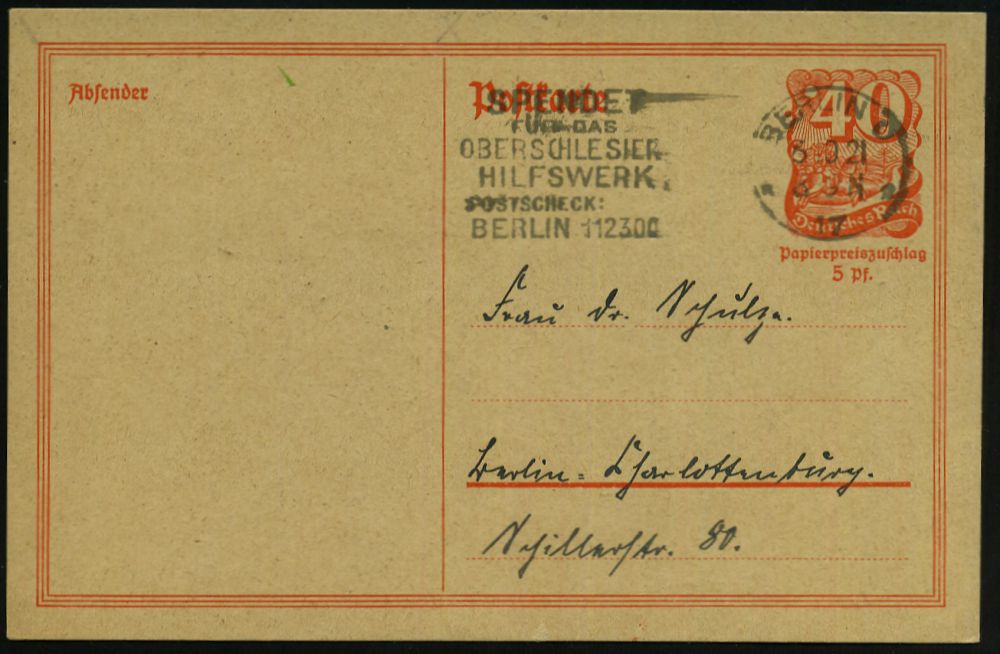 Absender
Postkarte
SPENDET
FÜR DAS
OBERSCHLESIER
HILFSWERK
POSTSCHECK:
BERLIN 112300
40
BERLIN
21
17
Deutsches Reich
Papierpreiszuschlag
5 Pf.
Frau Dr. Schulze.
Berlin-Charlottenburg.
Schillerstr. 80.